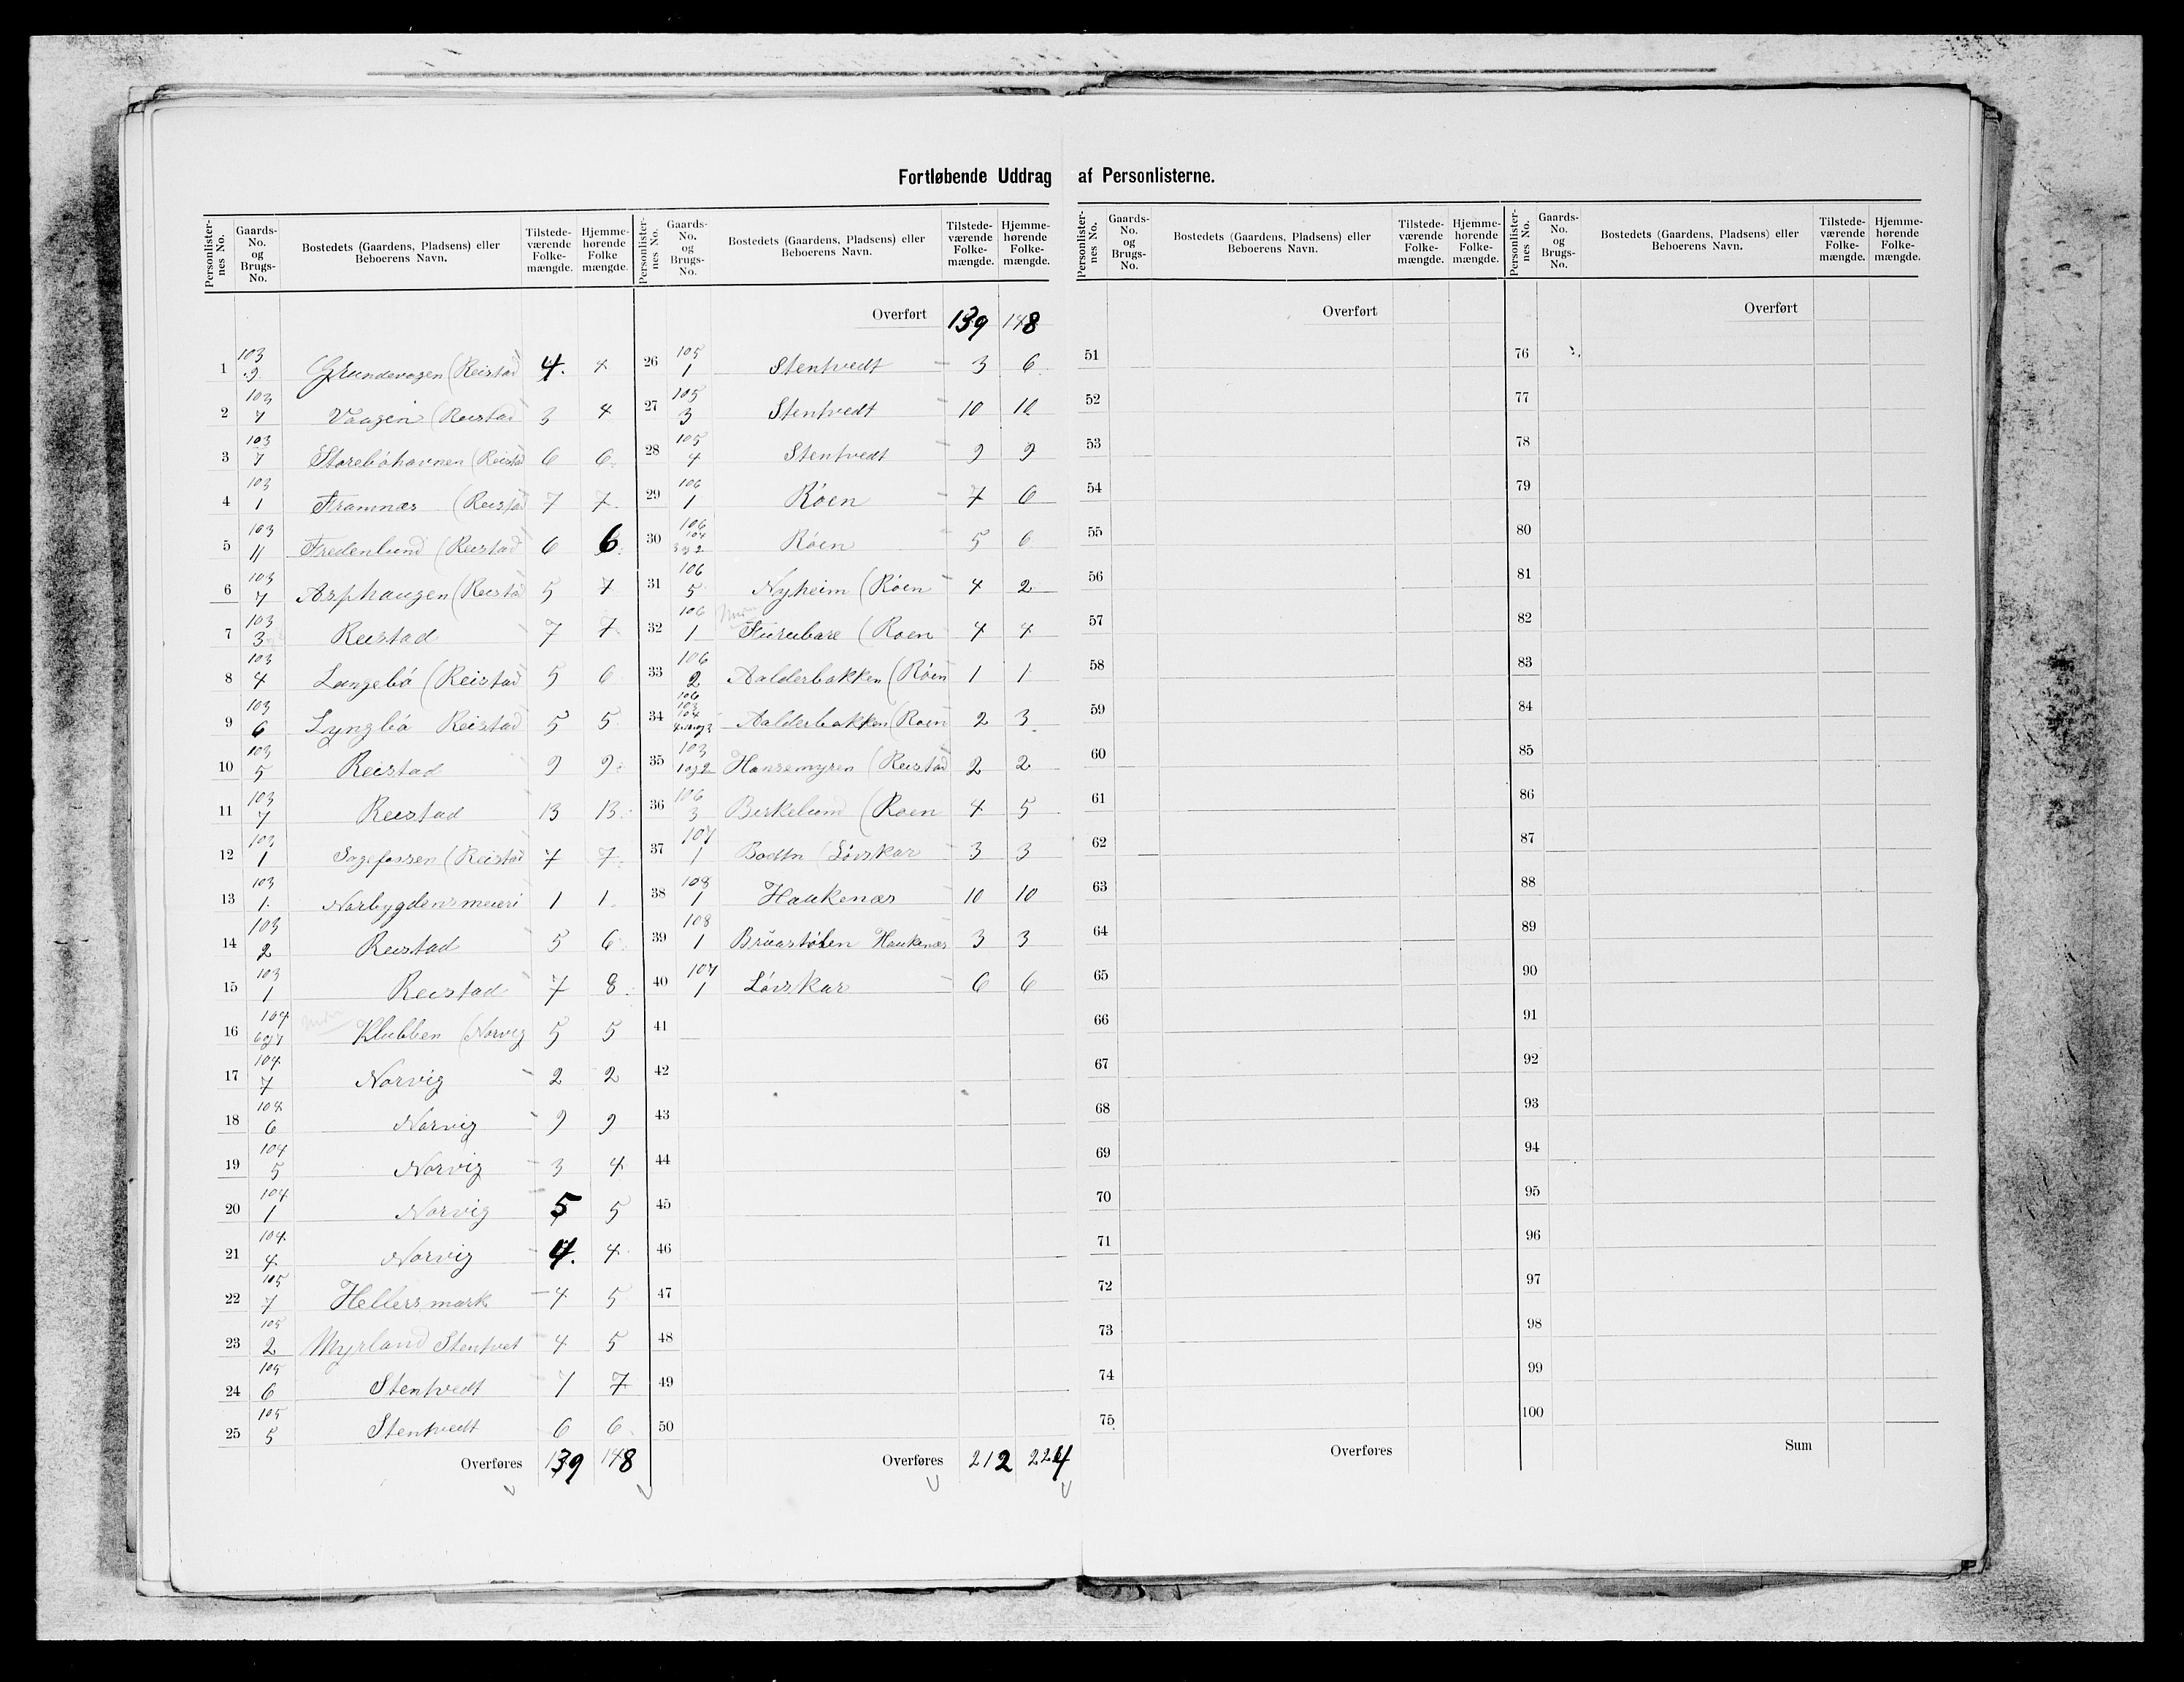 Fortløbende Uddrag af Personlisterne.
Personlister-nes No. | Gaards-No. og Brugs-No. | Bostedets (Gaardens, Pladsens) eller Beboerens Navn. | Tilstede-værende Folke-mængde. | Hjemme-hørende Folke mængde.
1 | 103 9 | Grundevagen (Reistad | 4. | 4
2 | 103 7 | Vaagen (Reistad | 3 | 4
3 | 103 7 | Storebøhavnen (Reistad | 6 | 6
4 | 103 1 | Framnæs (Reistad | 7 | 7
5 | 103 11 | Fredenlund (Reistad | 6 | 6
6 | 103 7 | Asphaugen (Reistad | 5 | 7
7 | 103 3 | Reistad | 7 | 7
8 | 103 4 | Langebø (Reistad | 5 | 6
9 | 103 6 | Lyngbø Reistad | 5 | 5
10 | 103 5 | Reistad | 9 | 9
11 | 103 7 | Reistad | 13 | 13
12 | 103 1 | Sagefossen (Reistad | 7 | 7
13 | 103 1 | Norbygdens meieri | 1 | 1
14 | 103 2 | Reistad | 5 | 6
15 | 103 1 | Reistad | 7 | 8
16 | 104 | Klubben (Norvig | 5 | 5
17 | 104 7 | Norvig | 2 | 2
18 | 104 6 | Norvig | 9 | 9
19 | 104 5 | Norvig | 3 | 4
20 | 104 1 | Norvig | 5 | 5
21 | 104 4 | Norvig | 4. | 4
22 | 105 7 | Hellersmark | 4 | 5
23 | 105 2 | Myrland Stentvet | 4 | 5
24 | 105 6 | Stentvedt | 7 | 7
25 | 105 5 | Stentvedt | 6 | 6
Overføres | 139 | 148
Personlister-nes No. | Gaards-No. og Brugs-No. | Bostedets (Gaardens, Pladsens) eller Beboerens Navn. | Tilstede-værende Folke-mængde. | Hjemme-hørende Folke-mængde.
Overført | 139 | 148
26 | 105 1 | Stentvedt | 3 | 6
27 | 105 3 | Stentvedt | 10 | 10
28 | 105 4 | Stentvedt | 9 | 9
29 | 106 1 | Røen | 7 | 6
30 | 106 104 | Røen | 5 | 6
31 | 106 5 | Nyheim (Røen | 4 | 2
32 | 106 1 | Furubare (Roen | 4 | 4
33 | 106 2 | Aalderbakken (Røen | 1 | 1
34 | 106 103 104 | Aalderbakken (Roen | 2 | 3
35 | 103 1 og 2 | Hansemyren (Reistad | 2 | 2
36 | 106 3 | Birkelund (Roen | 4 | 5
37 | 107 1 | Bodtn (Løvskar | 3 | 3
38 | 108 1 | Haukenæs | 10 | 10
39 | 108 1 | Bruastølen Haukenæs | 3 | 3
40 | 107 1 | Løvskar | 6 | 6
41
42
43
44
45
46
47
48
49
50
Overføres | 212 | 224
Personlister-nes No. | Gaards-No. og Brugs-No. | Bostedets (Gaardens, Pladsens) eller Beboerens Navn. | Tilstede-værende Folke-mængde. | Hjemme-hørende Folke-mængde.
Overført
51
52
53
54
55
56
57
58
59
60
61
62
63
64
65
66
67
68
69
70
71
72
73
74
75
Overføres
Personlister-nes No. | Gaards-No. og Brugs-No. | Bostedets (Gaardens, Pladsens) eller Beboerens Navn. | Tilstede-værende Folke-mængde. | Hjemme-hørende Folke-mængde.
Overført
76
77
78
79
80
81
82
83
84
85
86
87
88
89
90
91
92
93
94
95
96
97
98
99
100
Sum